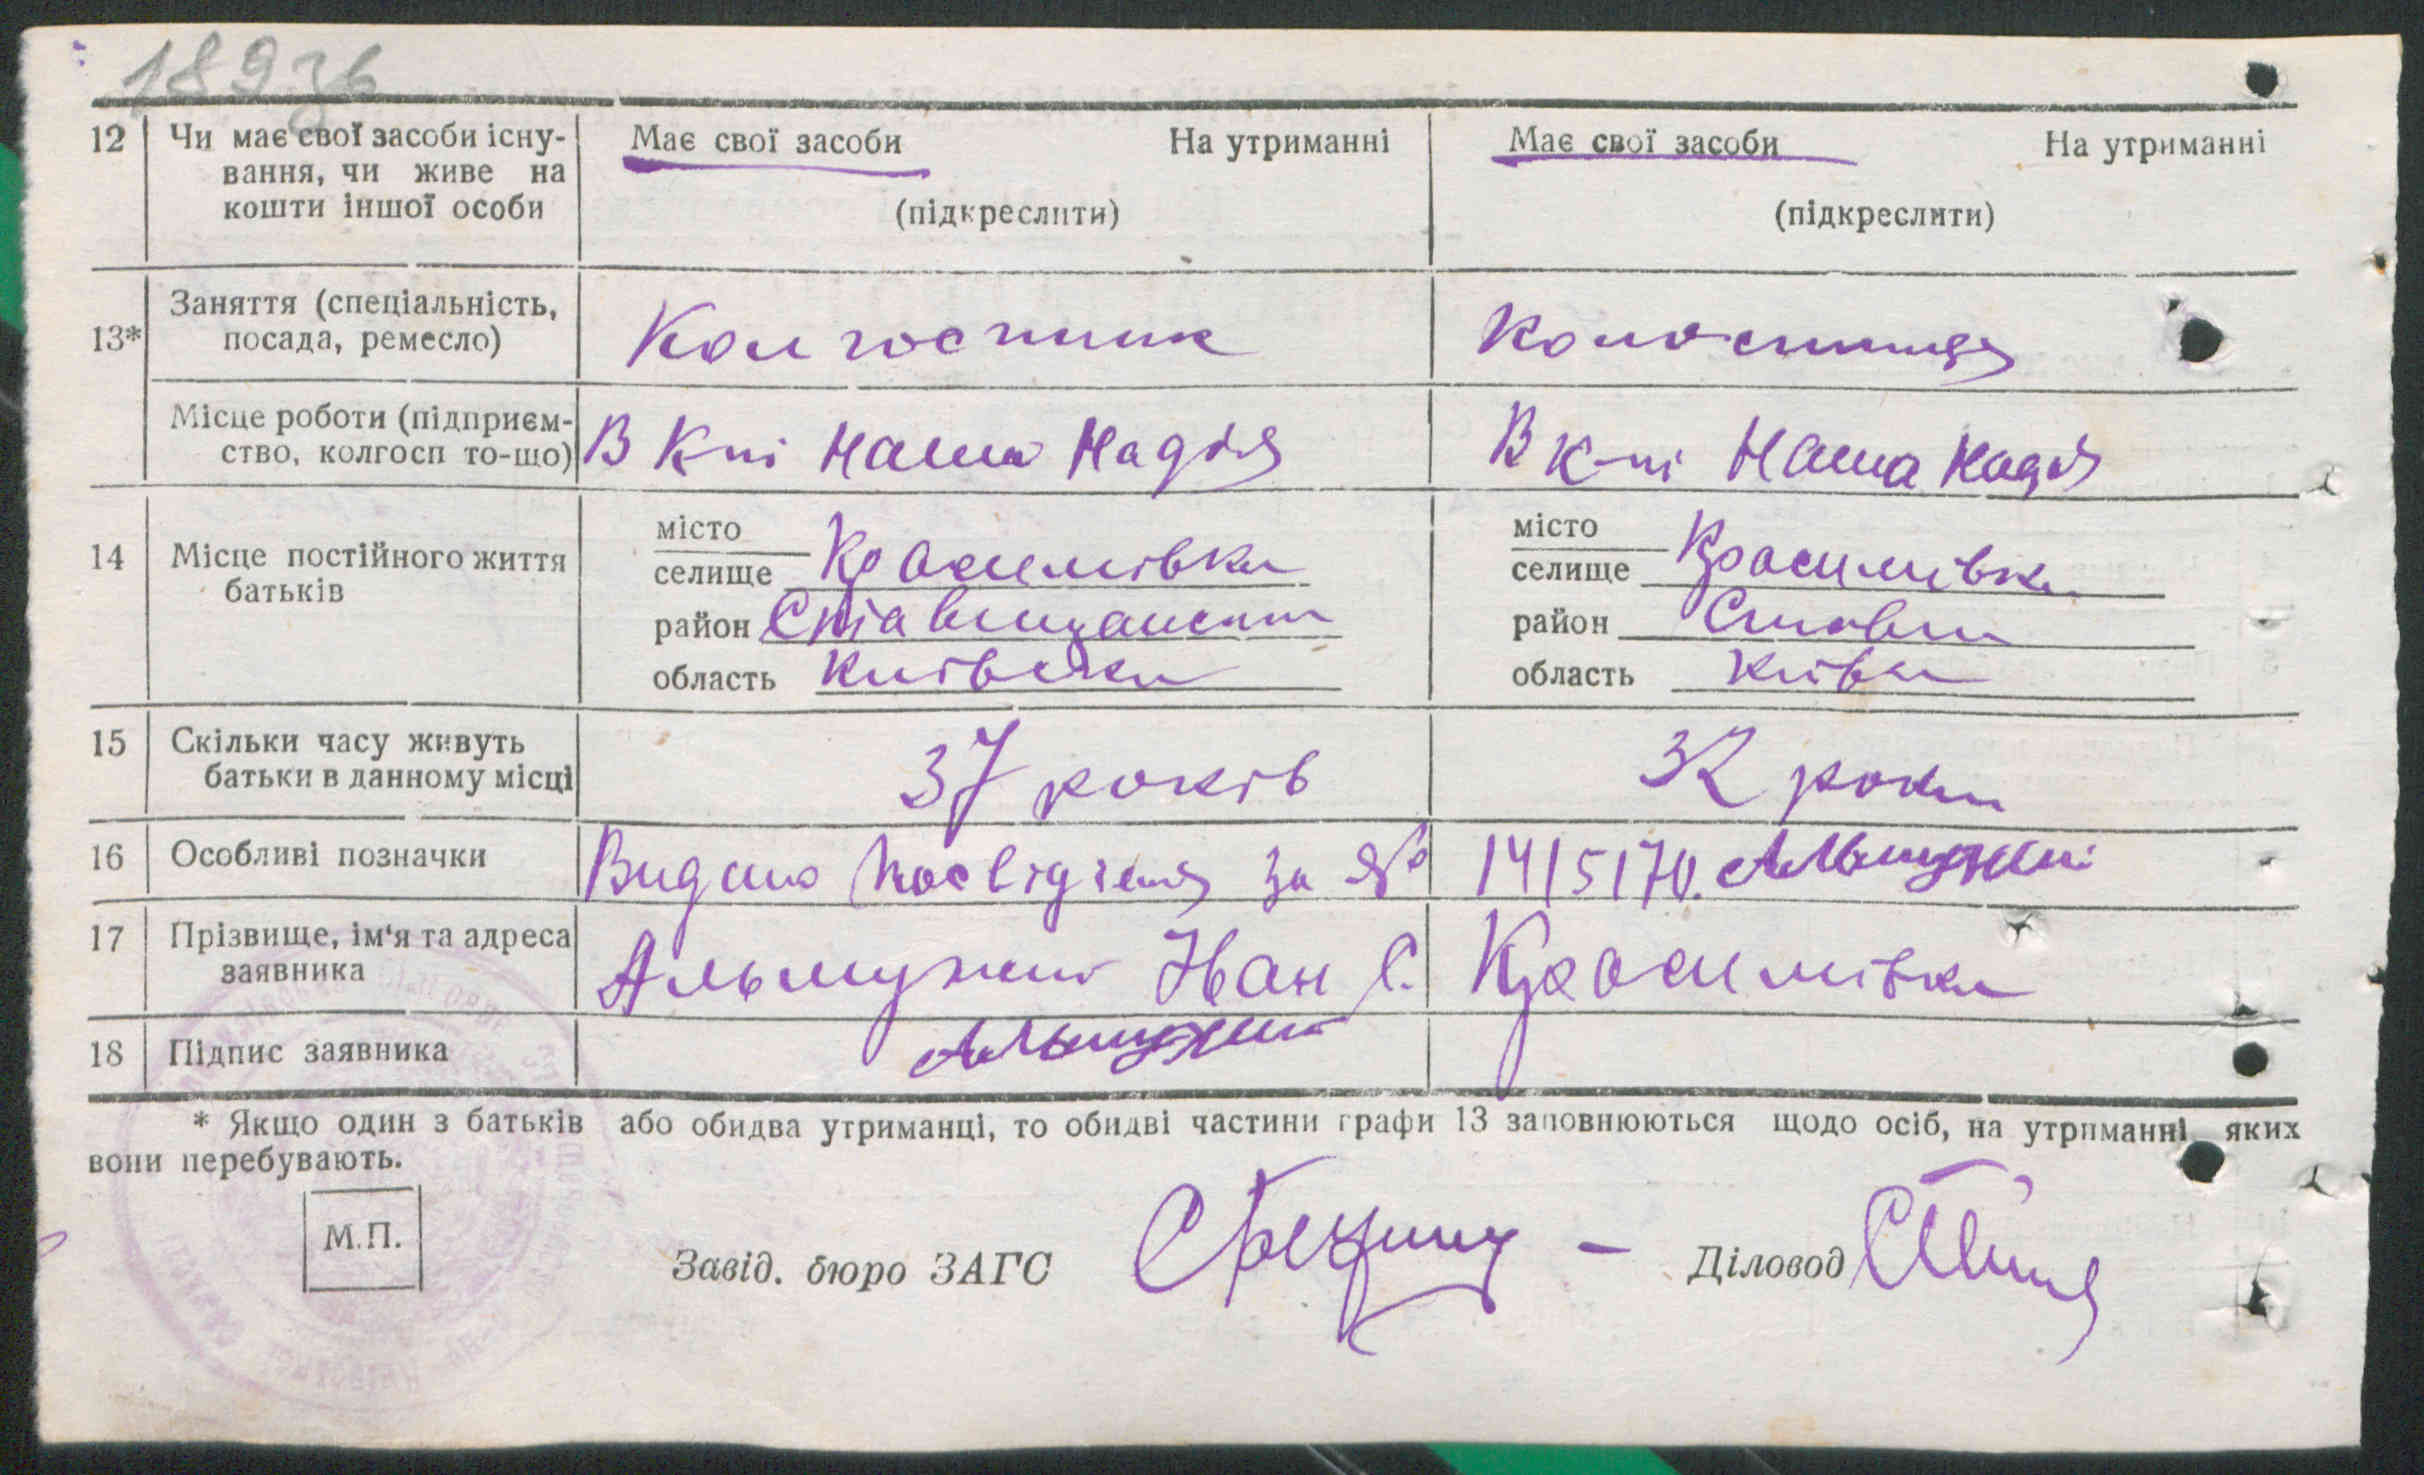 12 Чи має свої засоби існу- Має свої засоби На утриманні Має свої засоби На утриманні
вання, чи живе на
кошти іншої особи (підкреслити) (підкреслити)
Заняття (спеціальність,
13* посада, ремесло) Колгоспник Колгоспниця
Місце роботи (підприєм-
ство, колгосп то-що) В к-пі Наша Надія В к-пі Наша Надія
місто місто
14 Місце постійного життя селище Красилівка селище Красилівка
батьків район Ставищанский район Ставищ
область Київська область Київськ
15 Скільки часу живуть 37 років 32 роки
батьки в данному місці
16 Особливі позначки Видано посвідчення за № 14/5170.
17 Прізвище, ім'я та адреса
заявника Іван С. Красилівка
18 Підпис заявника
* Якщо один з батьків або обидва утриманці, то обидві частини графи 13 заповнюються щодо осіб, на утриманні яких
вони перебувають.
М.П.
Завід. бюро ЗАГС Діловод